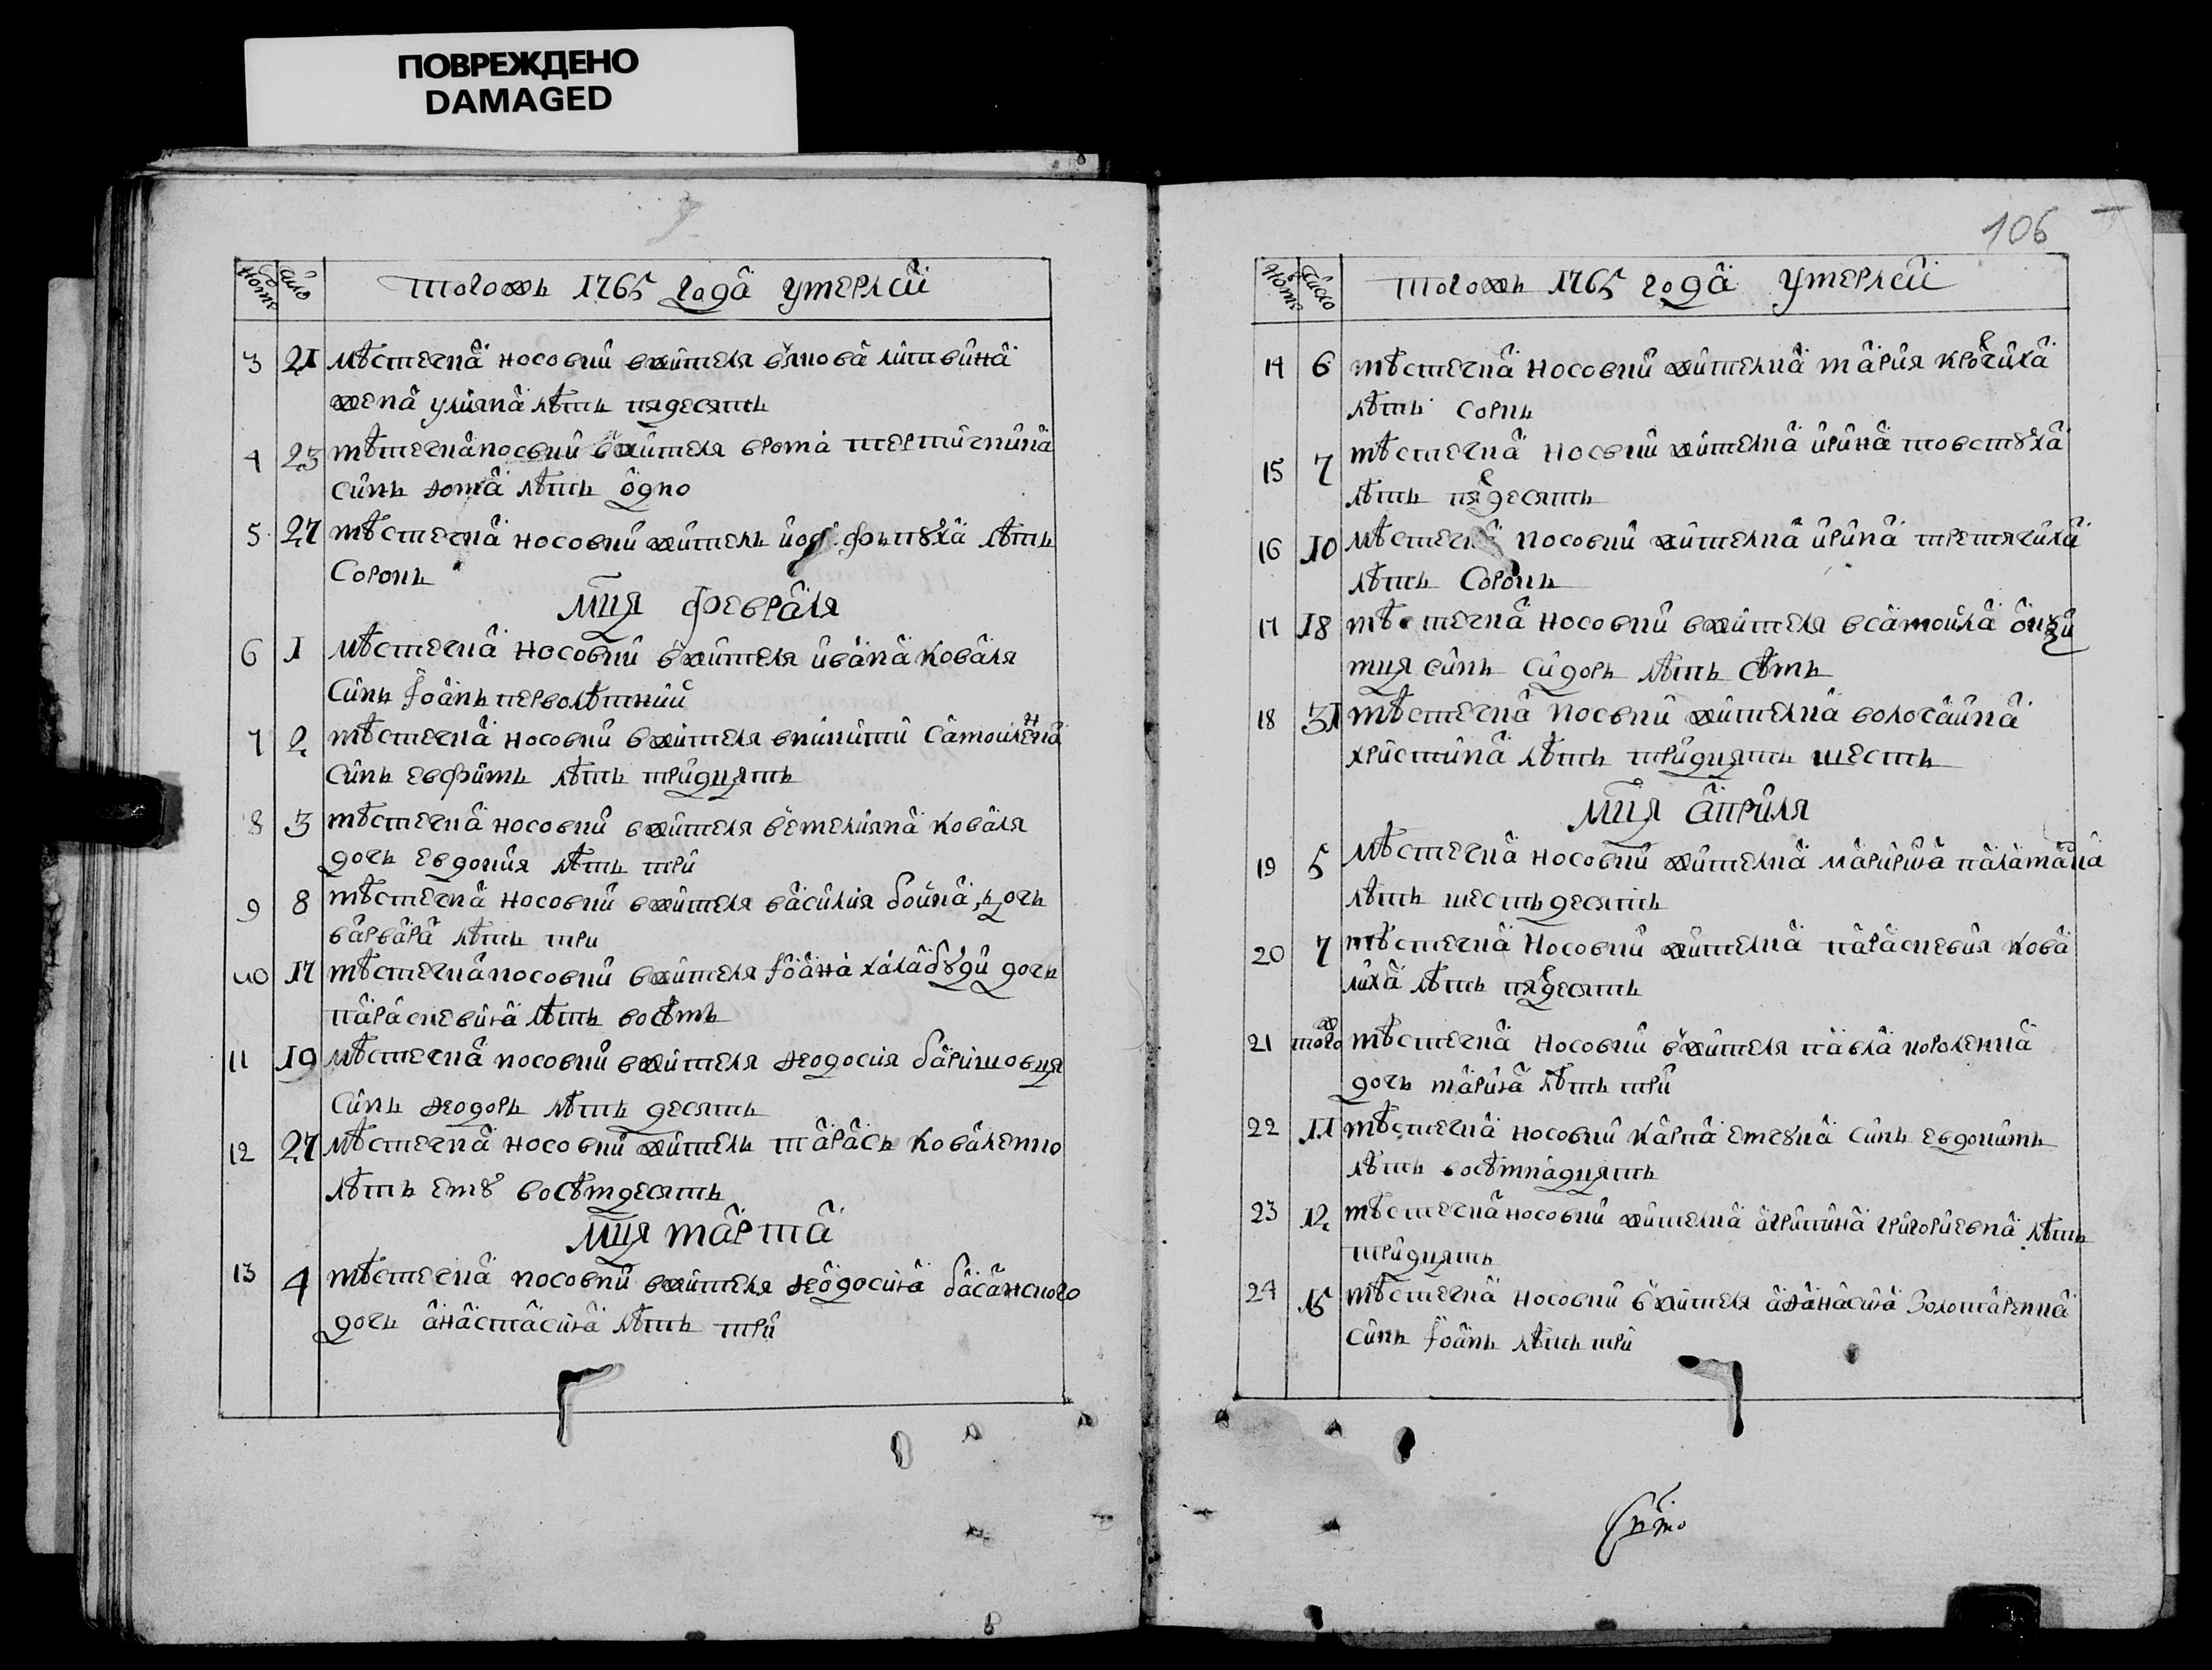 ПОВРЕЖДЕНО
DAMAGED
Тогожъ 1765 года умерлси
3 21 Мѣстечка носовки вжителя вякова литвина
жена улияна лѣтъ пядесятъ
4 23 мѣстечка носовки вжителя
синъ ѳома лѣтъ одно
5 27 мѣстечка носовки житель лѣтъ
Сорокъ
мця февраля
6 1 мѣстечка носовки вжителя ивана коваля
Синъ іоанъ перволѣтний
7 2 мѣстечка носовки вжителя вникити Самойленка
синъ евфимъ лѣтъ тридцять
8 3 мѣстечка носовки вжителя вемелияна коваля
дочъ евдокия лѣтъ три
9 8 мѣстечка носовки вжителя василия бойка дочъ
варвара лѣтъ три
10 17 мѣстечка носовки вжителя іоана халабуди дочъ
параскевия лѣтъ восѣмъ
11 19 Мѣстечка носовки вжителя ѳеодосия баришовця
Синъ ѳеодоръ лѣтъ десятъ
12 27 Мѣстечка носовки житель тарасъ коваленко
лѣтъ ему восѣмдесятъ
мця марта
13 4 мѣстечка носовки вжителя ѳеодосия басанского
дочъ анастасия лѣтъ три
106
Тогожъ 1765 года умерлси
Число
14 6 мѣстечка носовки жителка мария крочиха
лѣтъ сорокъ
15 7 мѣстечка носовки жителка ирина товстуха
лѣтъ пядесятъ
16 10 Мѣстечка носовки жителка ирина третячиха
лѣтъ Сорокъ
17 18 мѣстечка носовки вжителя всамойла
синъ сидоръ лѣтъ сѣмъ
18 31 мѣстечка носовки жителка
христина лѣтъ тридцятъ шесть
мця априля
19 5 Мѣстечка носовки жителка паламарка
лѣтъ шестьдесятъ
20 7 мѣстечка носовки жителка параскевия кова
лиха лѣтъ пядесятъ
21 тогож мѣстечка носовки вжителя павла короленка
дочъ мария лѣтъ три
22 11 мѣстечка носовки карпа синъ евдокимъ
лѣтъ восѣмнадцятъ
23 12 мѣстечка носовки жителка агрипина григориевна лѣтъ
тридцятъ
24 15 мѣстечка носовки вжителя аѳанасия Золотаренка
синъ іоанъ лѣтъ три